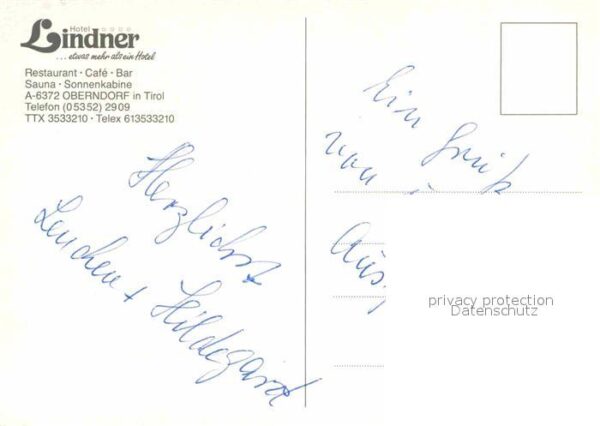 Hotel
Lindner
... etwas mehr als ein Hotel
Restaurant · Café · Bar
Sauna · Sonnenkabine
A-6372 OBERNDORF in Tirol
Telefon (05352) 2909
TTX 3533210 · Telex 613533210
Herzlichst
Lenchen + Hildegard
Ein Gruß
von
privacy protection
Datenschutz